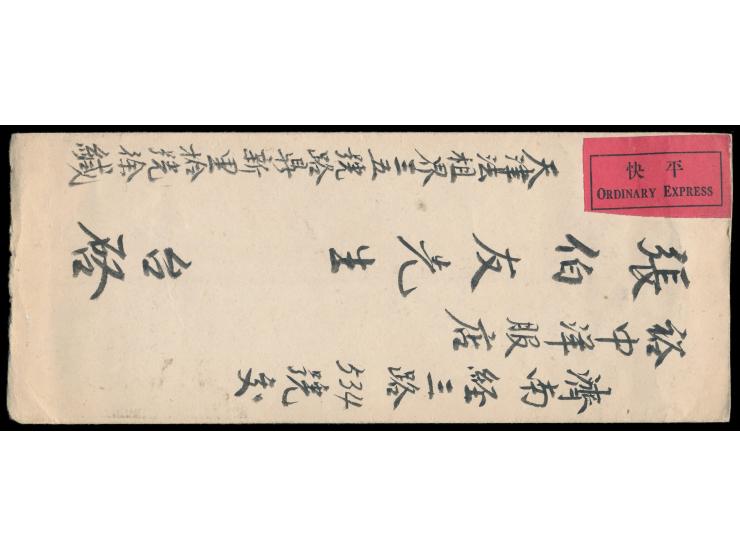 平快
ORDINARY EXPRESS
濟南經三路534號交
裕中洋服店
張伯友先生 台啓
天津法租界三五號路鼎新里拾號徐緘